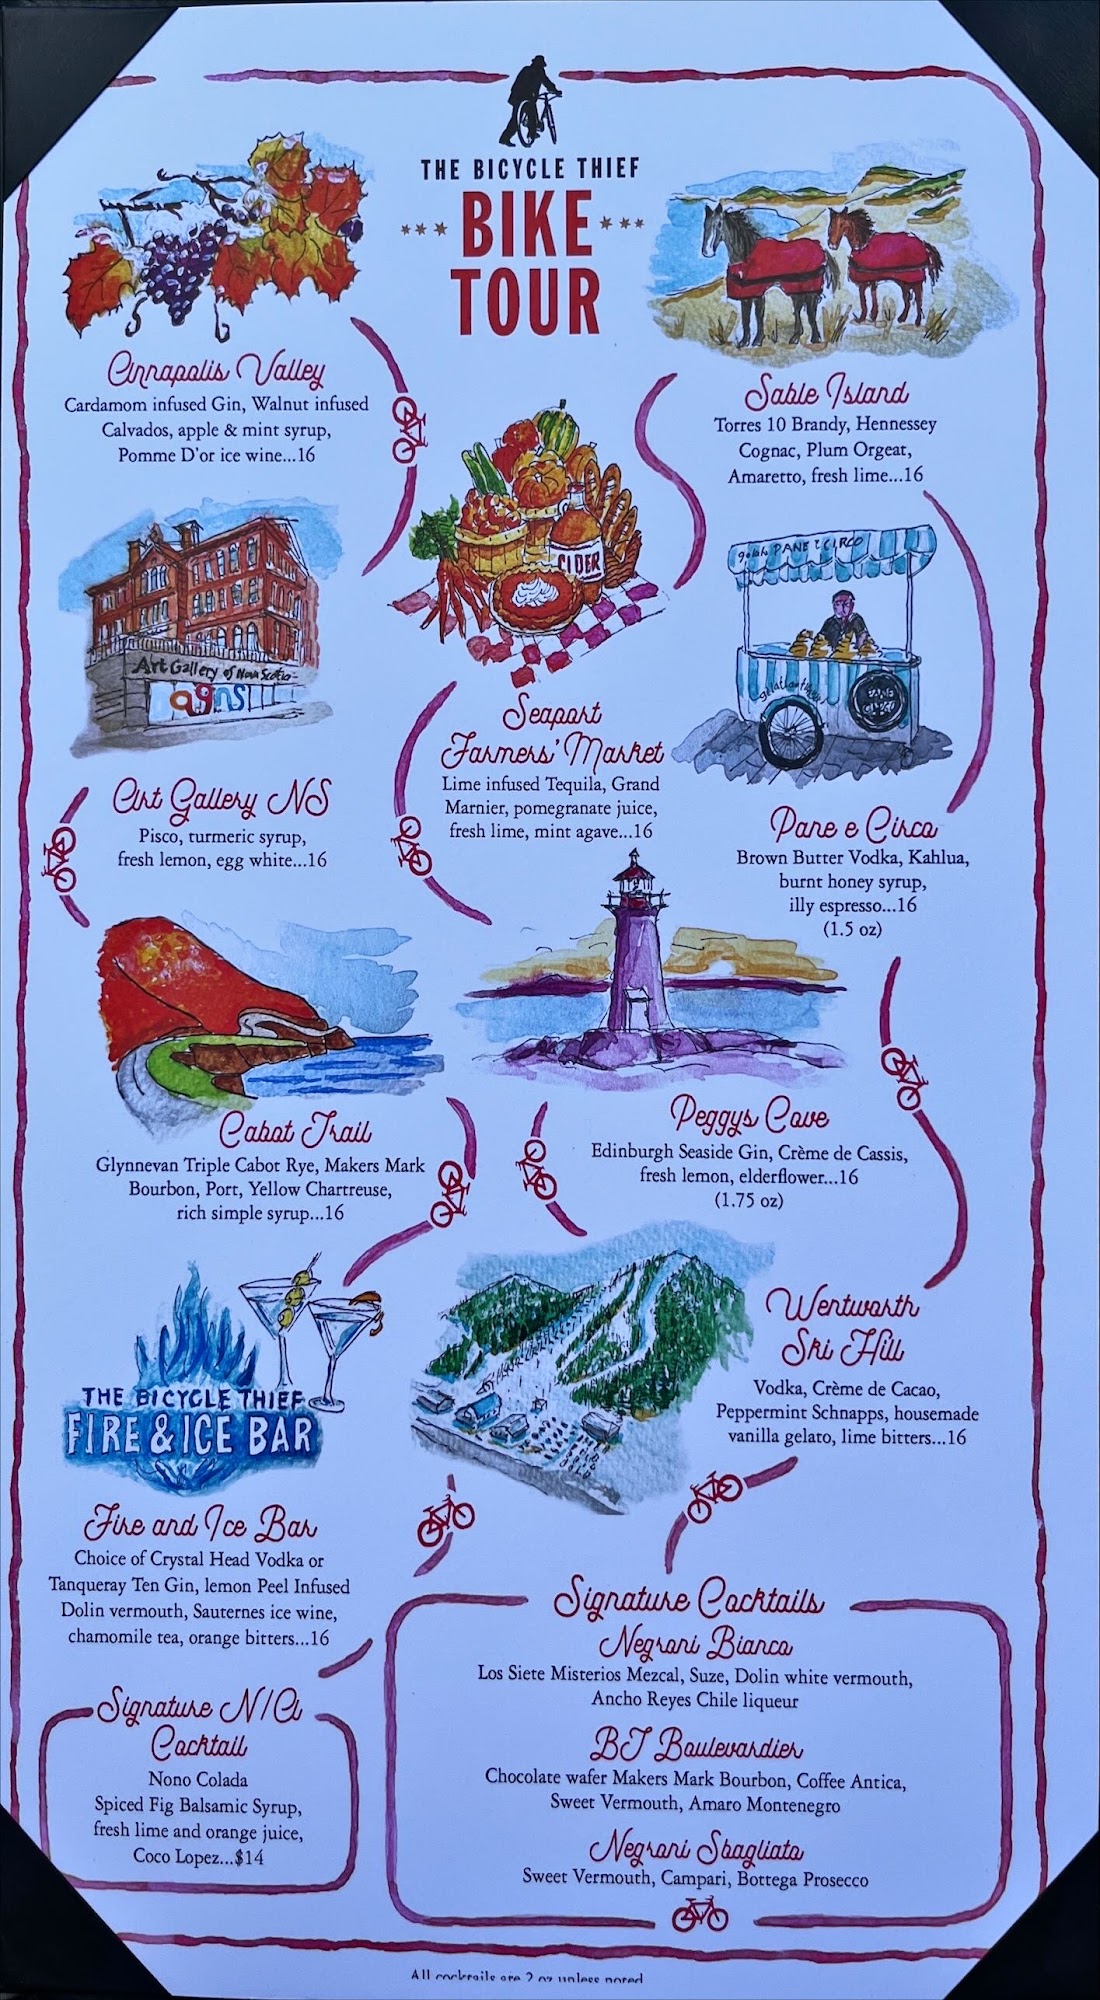 THE BICYCLE THIEF
BIKE
TOUR
Annapolis Valley
Cardamom infused Gin, Walnut infused
Calvados, apple & mint syrup,
Pomme D'or ice wine...16
Sable Island
Torres 10 Brandy, Hennessey
Cognac, Plum Orgeat,
Amaretto, fresh lime...16
CIDER
Art Gallery of Nova Scotia
agns
Art Gallery NS
Pisco, turmeric syrup,
fresh lemon, egg white...16
Seaport
Farmers' Market
Lime infused Tequila, Grand
Marnier, pomegranate juice,
fresh lime, mint agave...16
PANE e CIRCO
Pane e Circo
Brown Butter Vodka, Kahlua,
burnt honey syrup,
illy espresso...16
(1.5 oz)
Cabot Trail
Glynnevan Triple Cabot Rye, Makers Mark
Bourbon, Port, Yellow Chartreuse,
rich simple syrup...16
Peggys Cove
Edinburgh Seaside Gin, Crème de Cassis,
fresh lemon, elderflower...16
(1.75 oz)
THE BICYCLE THIEF
FIRE & ICE BAR
Fire and Ice Bar
Choice of Crystal Head Vodka or
Tanqueray Ten Gin, lemon Peel Infused
Dolin vermouth, Sauternes ice wine,
chamomile tea, orange bitters...16
Wentworth
Ski Hill
Vodka, Crème de Cacao,
Peppermint Schnapps, housemade
vanilla gelato, lime bitters...16
Signature N/A
Cocktail
Nono Colada
Spiced Fig Balsamic Syrup,
fresh lime and orange juice,
Coco Lopez...$14
Signature Cocktails
Negroni Bianco
Los Siete Misterios Mezcal, Suze, Dolin white vermouth,
Ancho Reyes Chile liqueur
BT Boulevardier
Chocolate wafer Makers Mark Bourbon, Coffee Antica,
Sweet Vermouth, Amaro Montenegro
Negroni Sbagliato
Sweet Vermouth, Campari, Bottega Prosecco
All cocktails are 2 oz unless noted